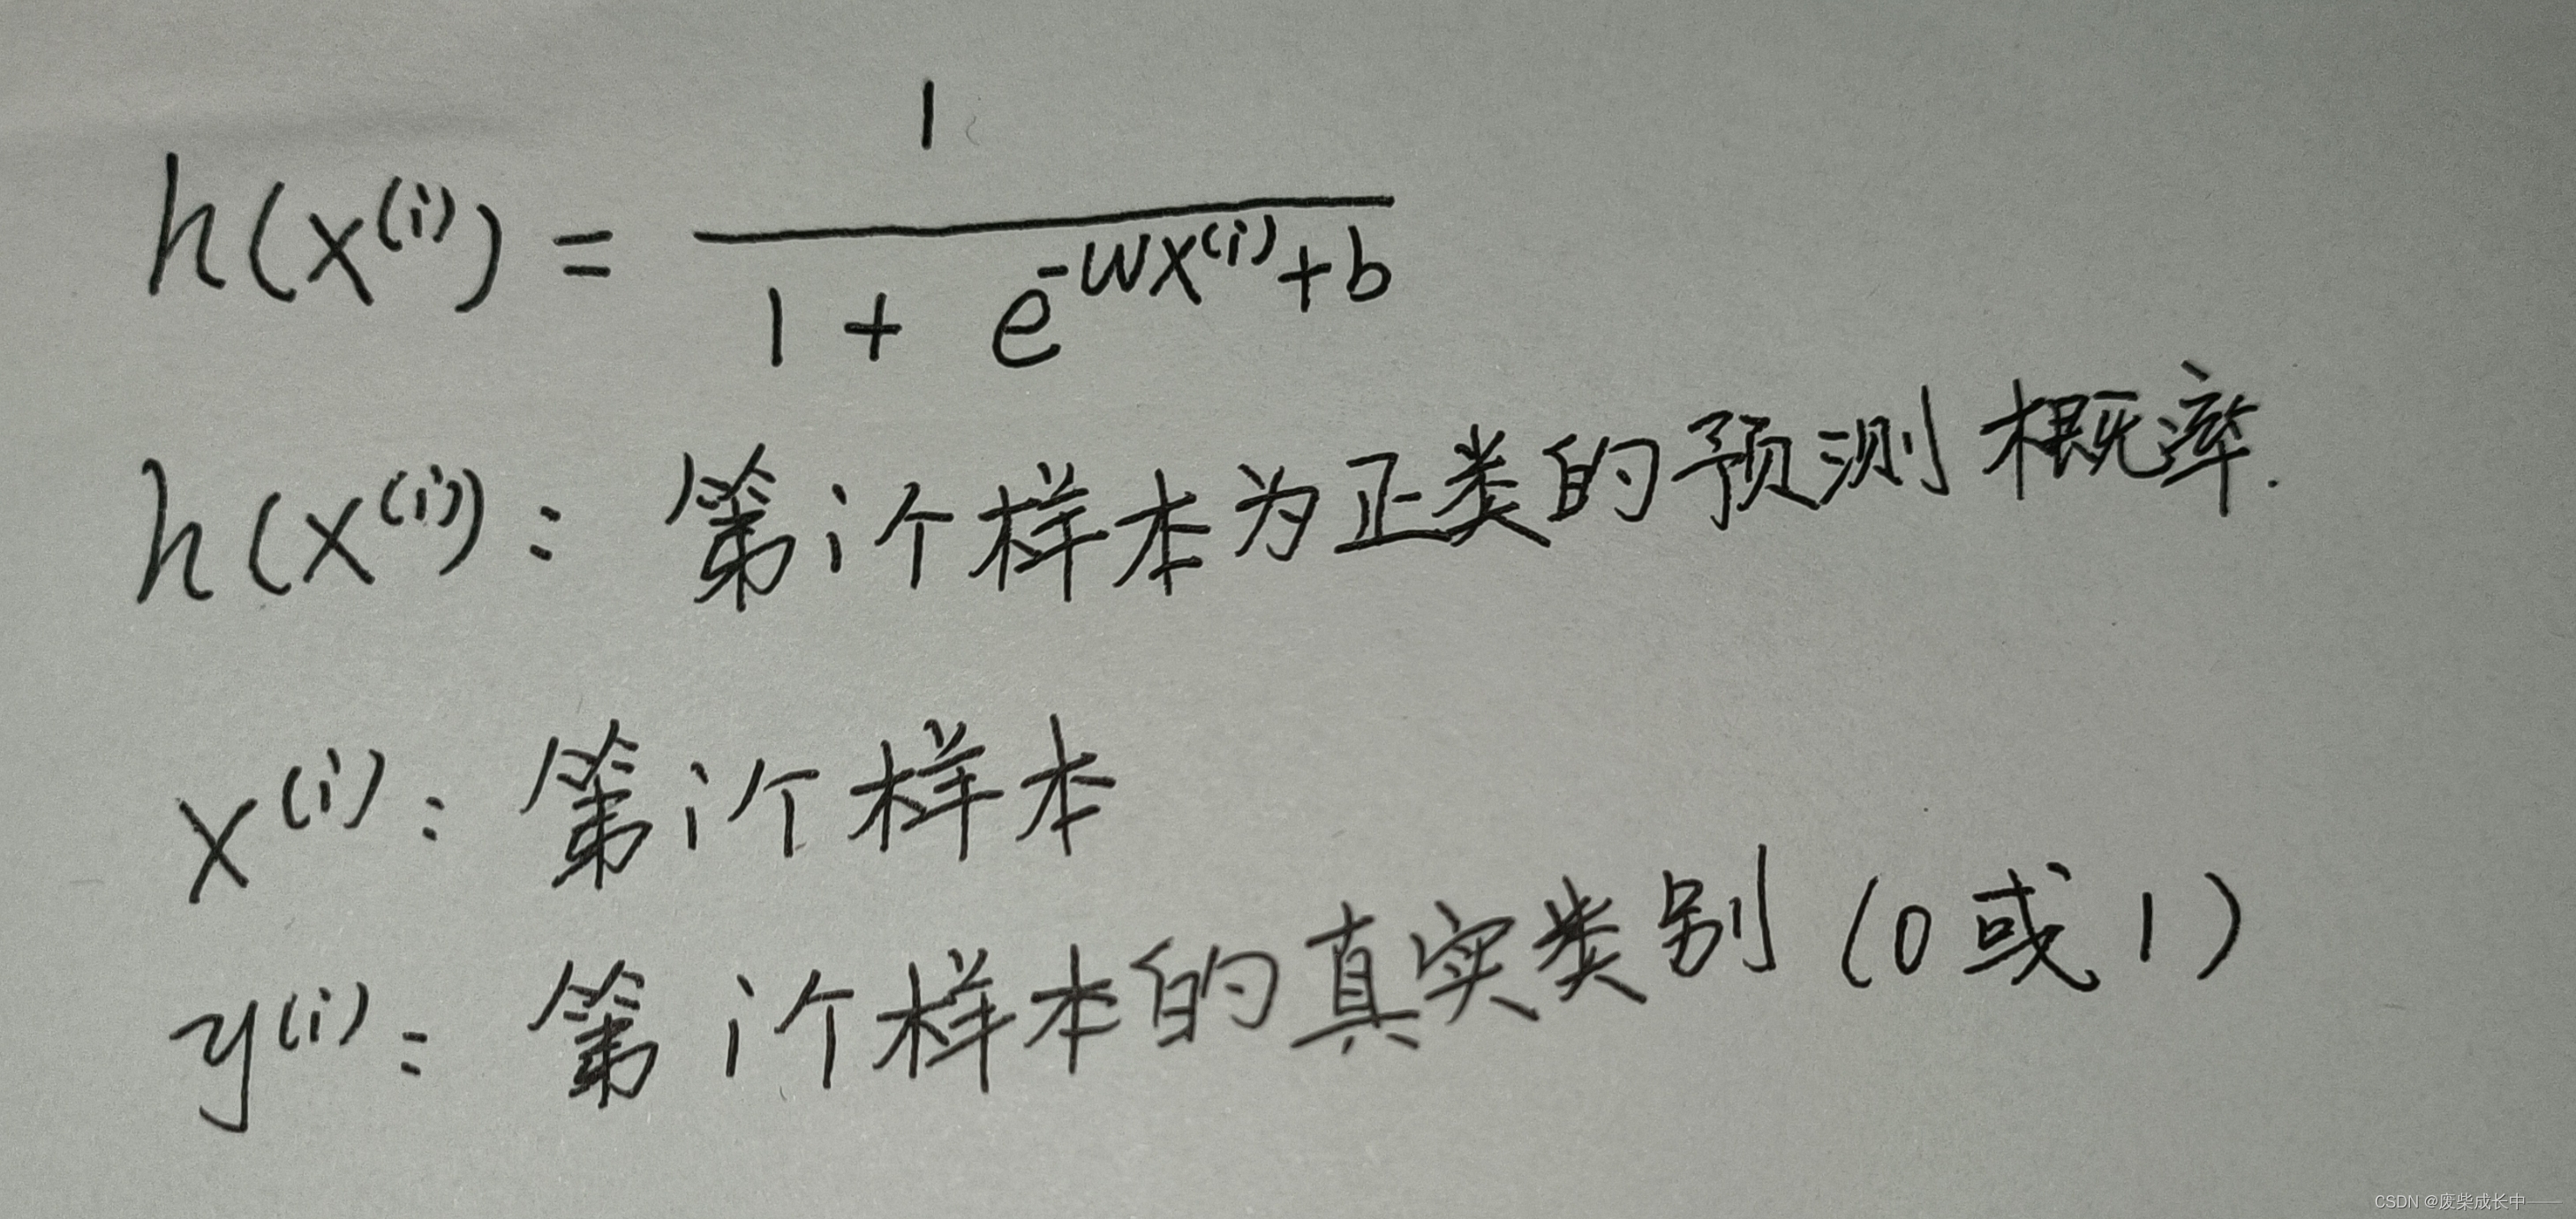 h(x^{(i)}) = \frac{1}{1 + e^{-wx^{(i)}+b}}
h(x^{(i)}): 第i个样本为正类的预测概率.
x^{(i)}: 第i个样本
y^{(i)}: 第i个样本的真实类别(0或1)
CSDN @废柴成长中——